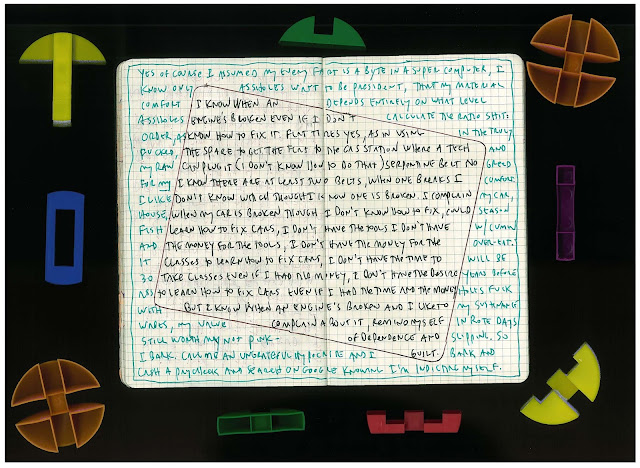 YES OF COURSE I ASSUMED MY EVERY FART IS A BYTE IN A SUPER COMPUTER, I
KNOW ONLY ASSHOLES WANT TO BE PRESIDENT, THAT MY MATERIAL
COMFORT I KNOW WHEN AN DEPENDS ENTIRELY ON WHAT LEVEL
ASSHOLES ENGINE'S BROKEN EVEN IF I DON'T CALCULATE THE RATIO SHITS
ORDER, AS KNOW HOW TO FIX IT. FLAT TIRES YES, AS IN USING IN THE TRULY
FUCKED, THE SPARE TO GET THE FLAT TO THE GAS STATION WHERE A TECH AND
MY RAW CAN PLUG IT (I DON'T KNOW HOW TO DO THAT) SERPENTINE BELT NO GREED
FOR MY I KNOW THERE ARE AT LEAST TWO BELTS, WHEN ONE BREAKS I COMFORT
I LIKE DON'T KNOW WHICH THOUGH I KNOW ONE IS BROKEN. I COMPLAIN MY CAR,
HOUSE, WHEN MY CAR IS BROKEN THOUGH I DON'T KNOW HOW TO FIX, COULD SEASON
FISH LEARN HOW TO FIX CARS, I DON'T HAVE THE TOOLS I DON'T HAVE W/CUMIN
AND THE MONEY FOR THE TOOLS, I DON'T HAVE THE MONEY FOR THE
IT CLASSES TO LEARN HOW TO FIX CARS, I DON'T HAVE THE TIME TO WILL BE
30 TAKE CLASSES EVEN IF I HAD THE MONEY, I DON'T HAVE THE DESIRE YEARS BEFORE
ASS TO LEARN HOW TO FIX CARS EVEN IF I HAD THE TIME AND THE MONEY HOLES FUCK
WITH BUT I KNOW WHEN AN ENGINE'S BROKEN AND I LIKE TO MY
MY VALUE COMPLAIN ABOUT IT, REMIND MYSELF IN ROTE DAYS
STILL WORTH MY NOT PINK- OF DEPENDENCE AND SLIPPING. SO
I BARK. CALL ME AN UNGRATEFUL HYPOCRITE AND I GUILT BARK AND
CASH A PAYCHECK AND SEARCH ON GOOGLE KNOWING I'M INDICTING MYSELF.